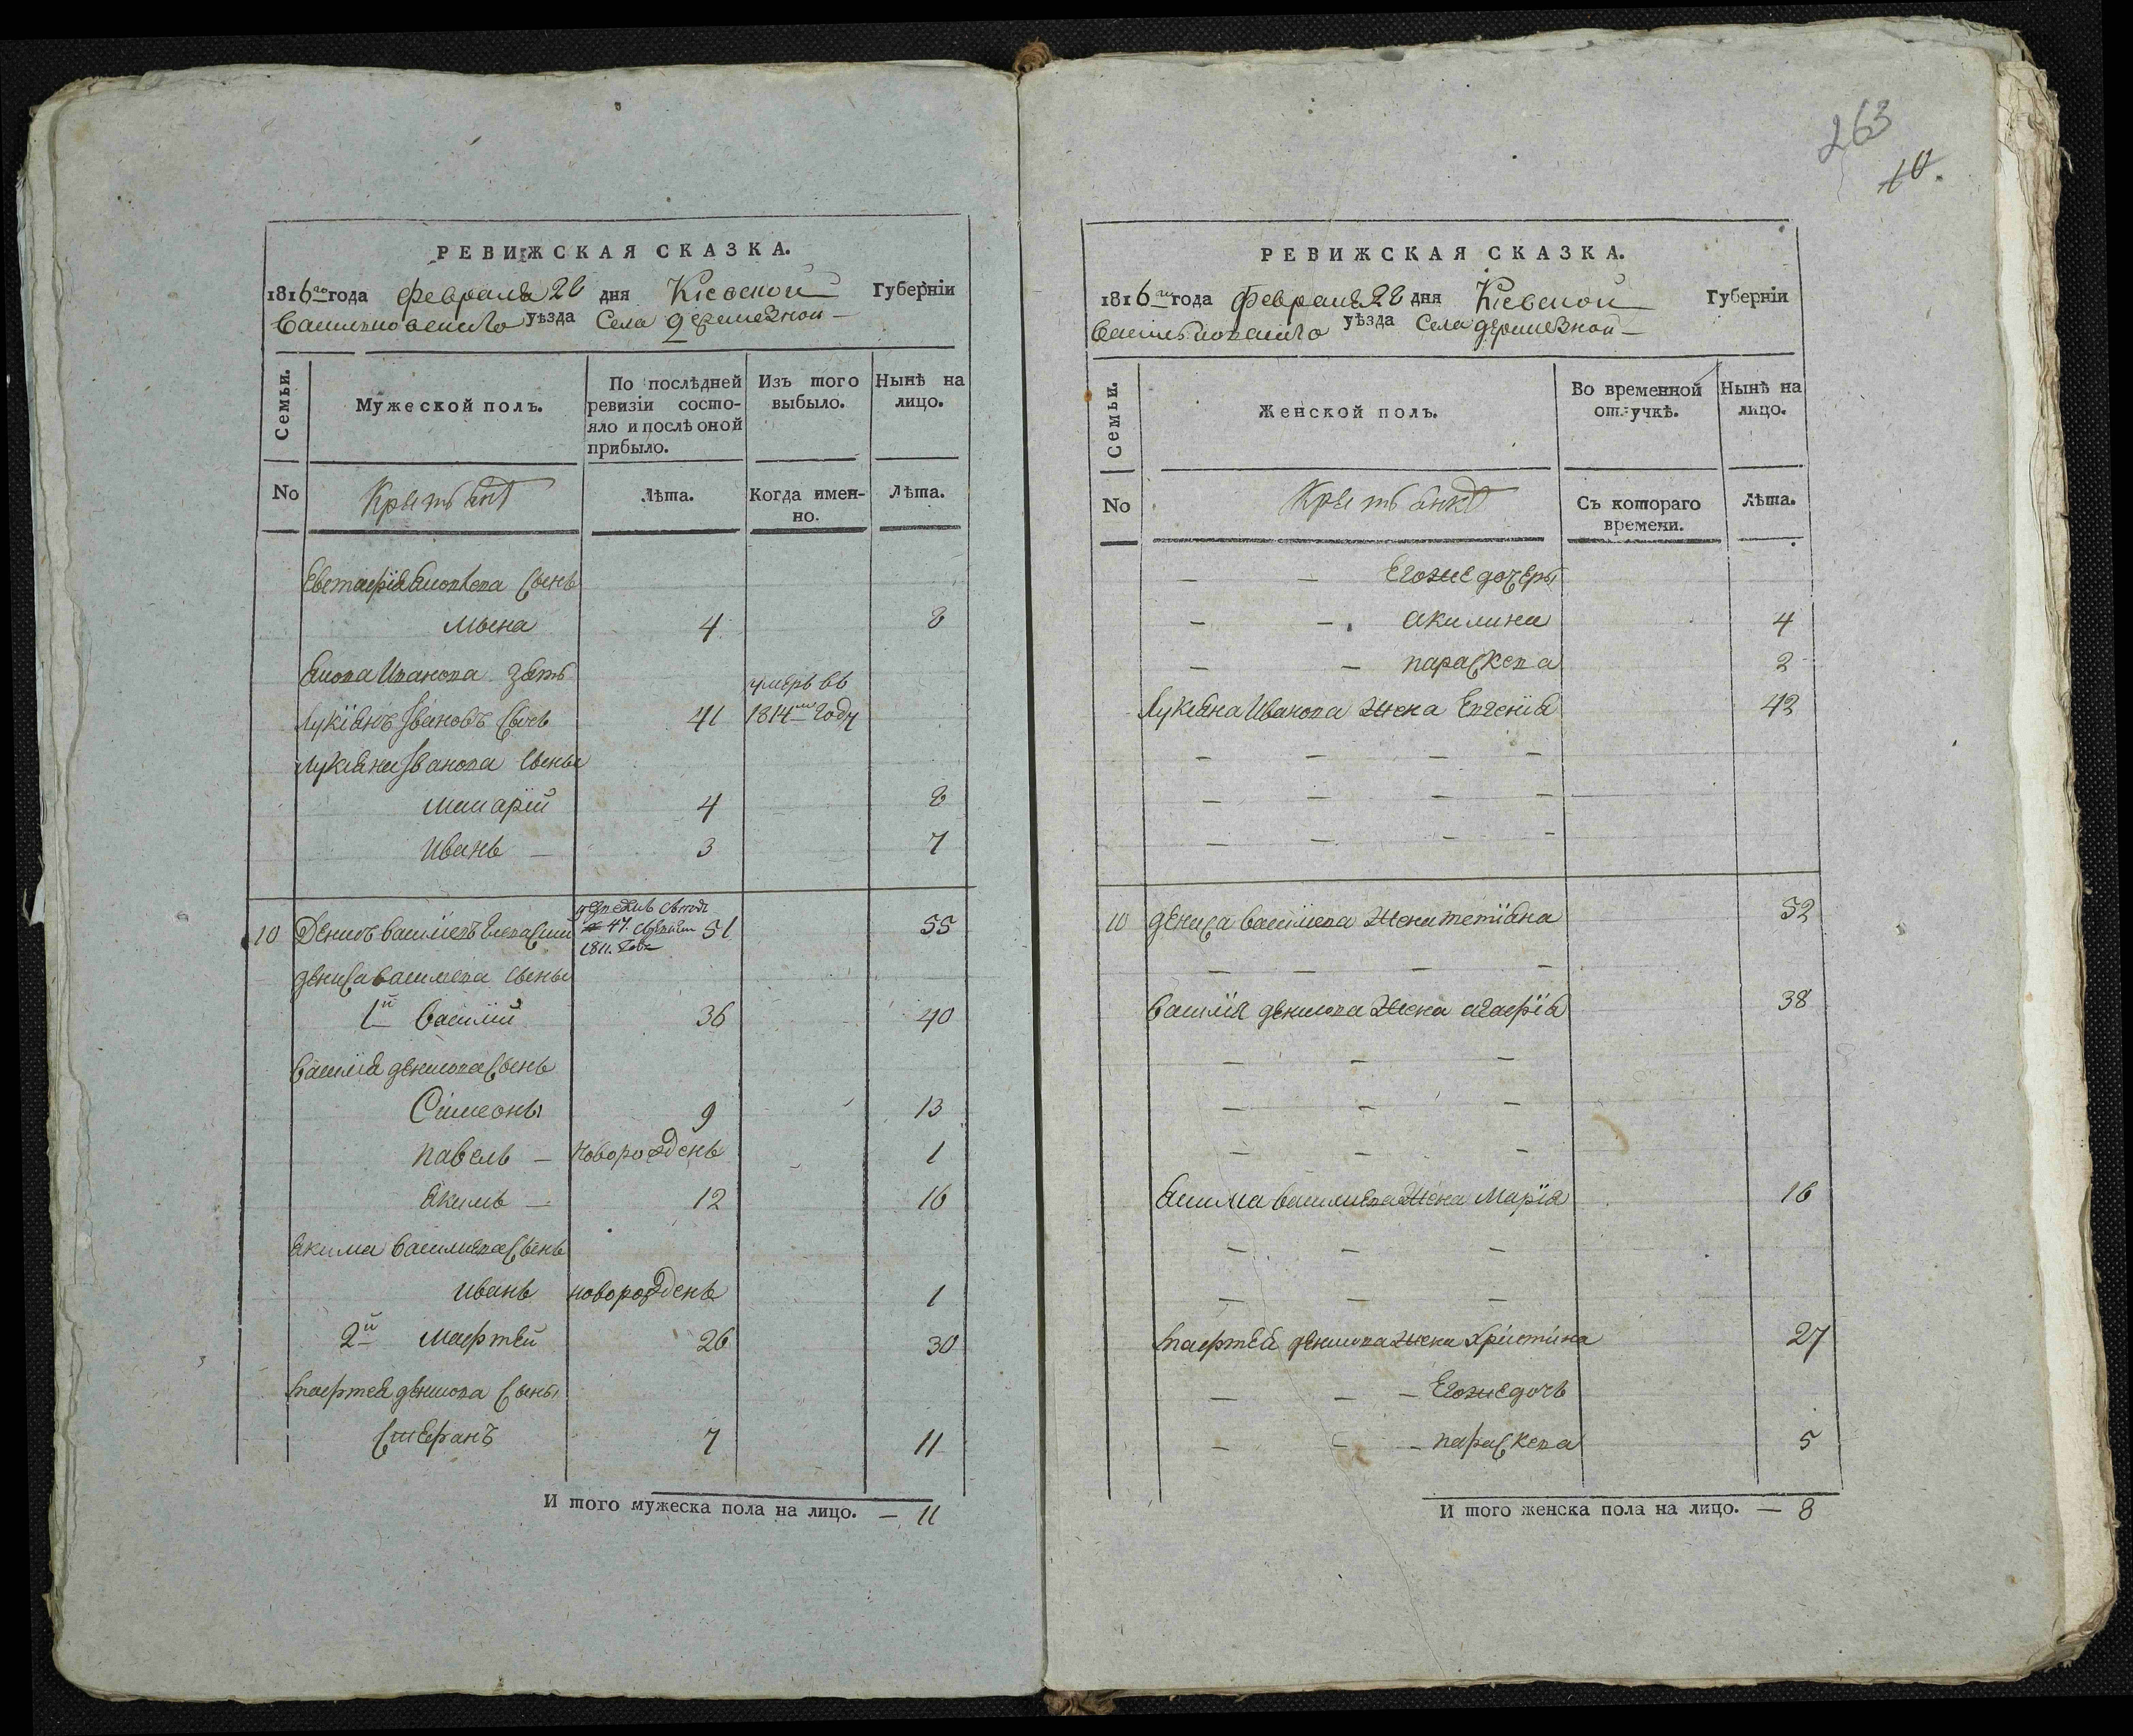 РЕВИЖСКАЯ СКАЗКА.
1816го года февраля 28 дня Кіевской Губерніи
Уѣзда Села
Семьи.
Мужеской полъ.
По послѣдней ревизіи состо-
яло и послѣ оной
прибыло.
Изъ того
выбыло.
Нынѣ на
лицо.
No
Лѣта.
Когда имен-
но.
Лѣта.
сынъ
4 8
Иванова зять
умеръ въ
Лукіянъ Івановъ 41 1814м году
Лукіяна Іванова сыны
Макарій 4 8
Иванъ — 3 7
10 Денисъ Василіевъ 51 55
47.
1811.
Дениса Василиева сыны
1й Василий 36 40
Василія Денисова сынъ
Симеонъ 9 13
Павелъ — новорожденъ 1
Якимъ — 12 16
Якима Василиева сынъ
Иванъ новорожденъ 1
2й 26 30
Денисова сынъ
Стефанъ 7 11
И того мужеска пола на лицо. — 11
263
10.
РЕВИЖСКАЯ СКАЗКА.
1816го года Февраля 28 дня Кіевской Губерніи
уѣзда Села
Семьи.
Женской полъ.
Во временной
отлучкѣ.
Нынѣ на
лицо.
No
Съ котораго
времени.
Лѣта.
— — Егоже дочери
— — Акилина 4
— — Параскева 2
Лукіяна Иванова жена Евгенія 42
— — — —
— — — —
— — — —
10 Дениса Василиева жена Тетіяна 52
— — — —
Василія Денисова жена Агафія 38
— — —
— — —
— — —
Якима Василиева жена Марія 16
— — —
— — —
Денисова жена Христина 27
— — — Егоже дочь
— — — Параскева 5
И того женска пола на лицо. — 8